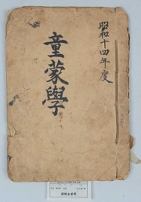 昭和十四年度
童蒙學